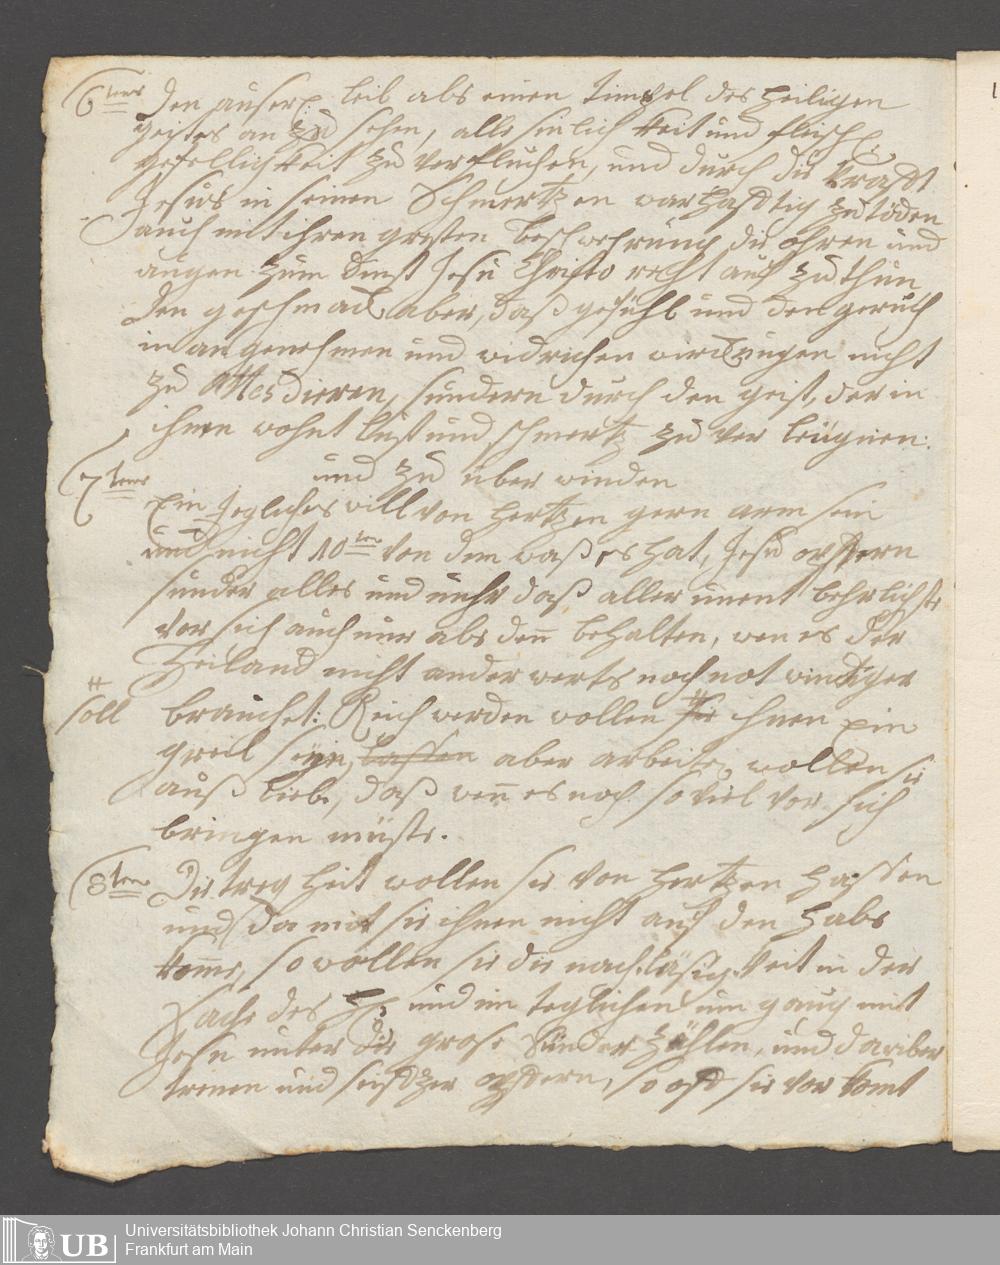 6tens Den äuserl. leib als einen Timpel des Heiligen
geistes an zu sehen, alle sinlichkeit und fleischl.
gefelligkeit zu verfluchen, und durch die Krafft
Jesus in seinen Schmertzen warhafftig zu töden
auch mit ihren grösten beschwehrung die ohren und
augen zum dinst Jesu Christo recht auf zu thun
den geschmack aber, daß gefühl und den geruch
in angenehmen und widrichen nicht
zu, sundern durch den geist, der in
ihnen wohnt lust und schmertz zu ver leügnen
und zu über winden
7tens Ein Jegliches will von Hertzen gern arm sein
und nicht 10ten von dem waß es hat, Jesu opffern
sunder alles und nuhr daß aller unent behrlichste
vor sich auch nur als den̄ behalten, wen es der
Heiland nicht ander werts noch not windiger
# soll brauchet: Reich werden wollen # ihnen Ein
greil seyn, lassen aber arbeiten wollen sie
auß liebe, daß wen̄ es noch so viel vor sich
bringen müste.
8tens Die tregheit wollen sie von Hertzen hassen
und damit sie ihnen nicht auf den Hals
kom̄e, so wollen sie die nachläßigkeit in der
Sache des H. und im teglichen um gang mit
Jesu unter die grose Sünder zählen, und darüber
trenen und seifftzer opffern, so offt sie vor komt
Universitätsbibliothek Johann Christian Senckenberg
Frankfurt am Main
UB